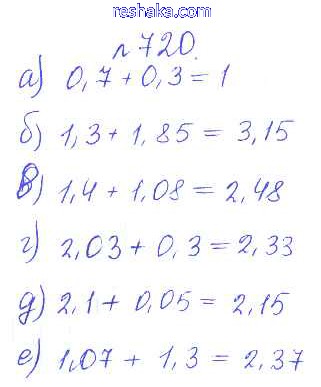 reshaka.com
№720.
а) 0,7+0,3=1
б) 1,3+1,85=3,15
в) 1,4+1,08=2,48
г) 2,03+0,3=2,33
д) 2,1+0,05=2,15
е) 1,07+1,3=2,37